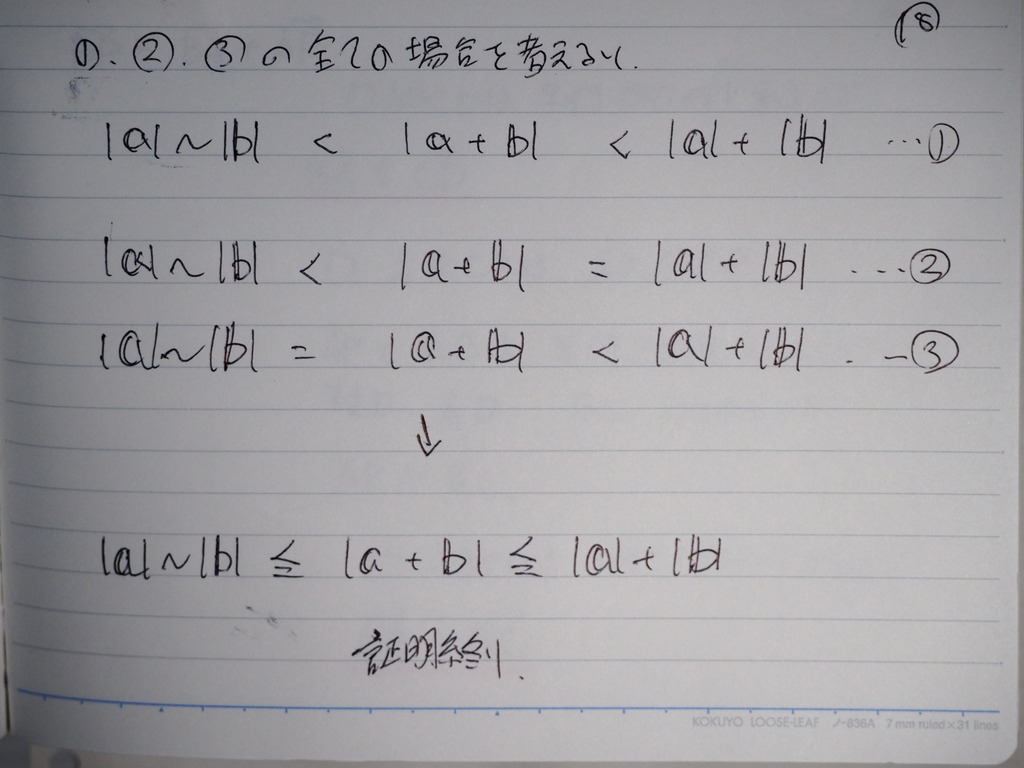 ⑱
①.②.③の全ての場合を考えると.
|a|~|b| < |a+b| < |a|+|b| …①
|a|~|b| < |a+b| = |a|+|b| …②
|a|~|b| = |a+b| < |a|+|b| …③
↓
|a|~|b| ≦ |a+b| ≦ |a|+|b|
証明終り.
KOKUYO LOOSE-LEAF ノ-836A 7 mm ruled×31 lines